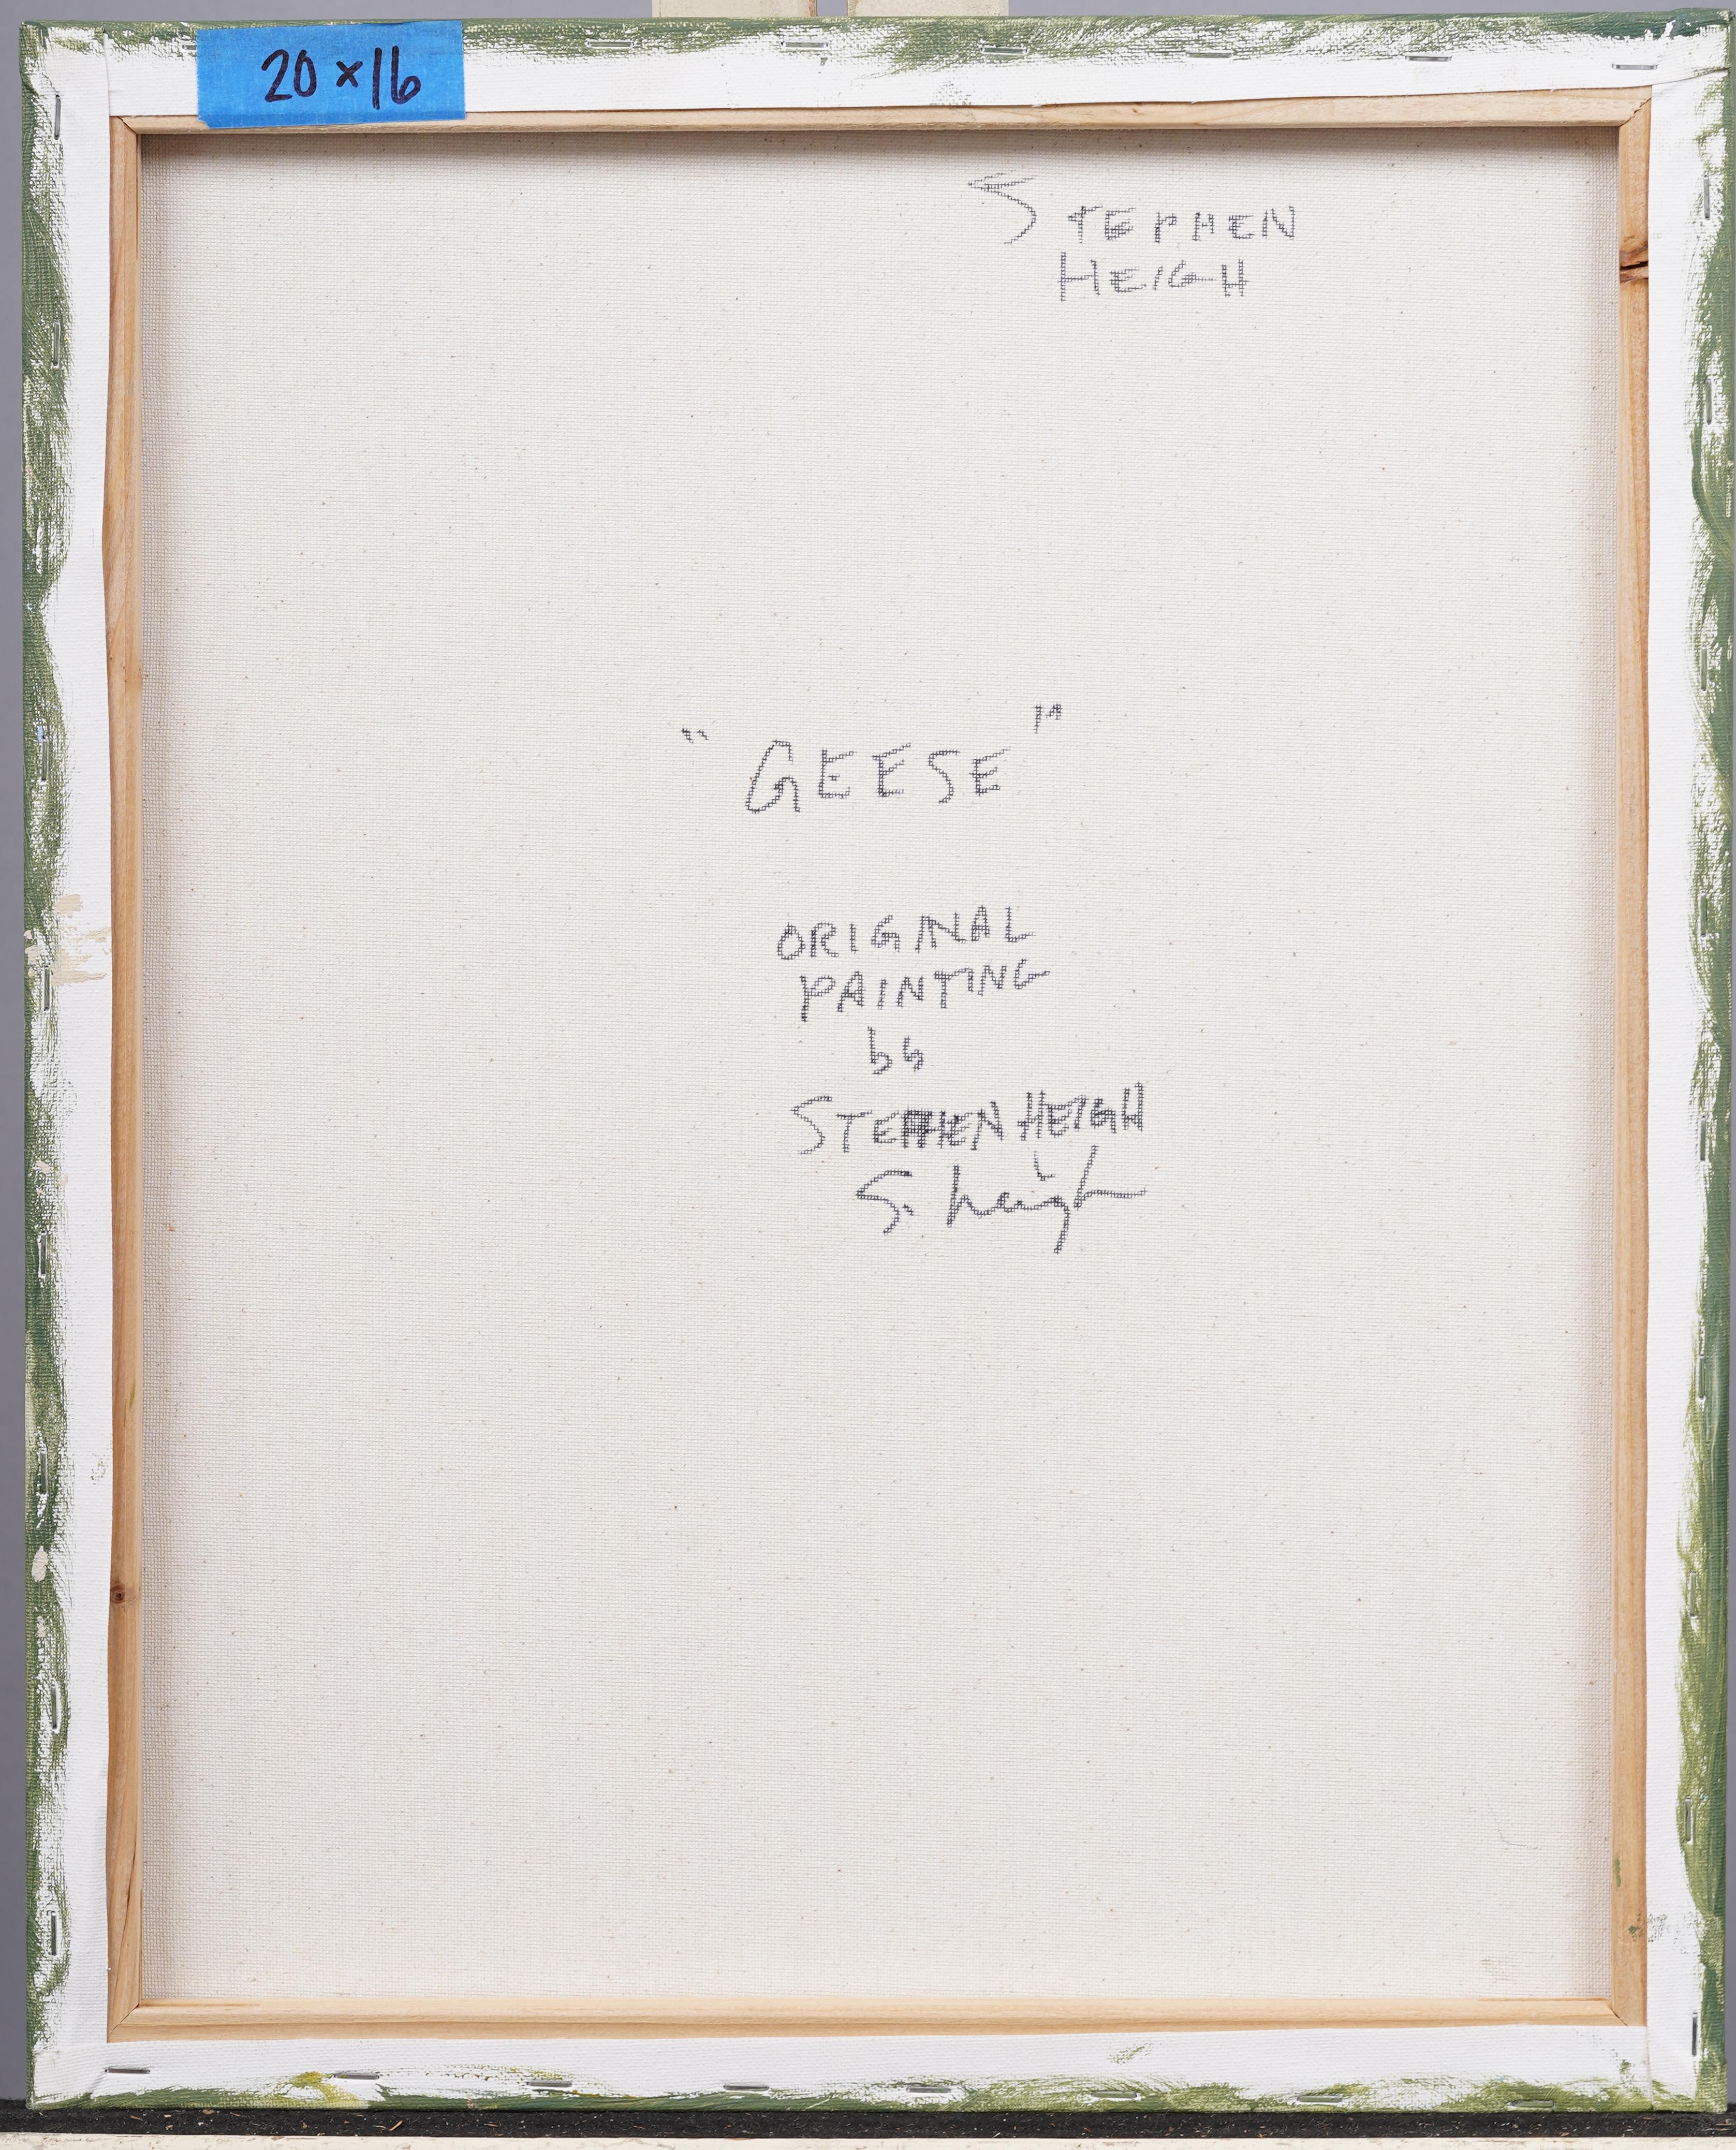 20 x 16
STEPHEN
HEIGH
"GEESE"
ORIGINAL
PAINTING
by
STEPHEN HEIGH
S. Heigh